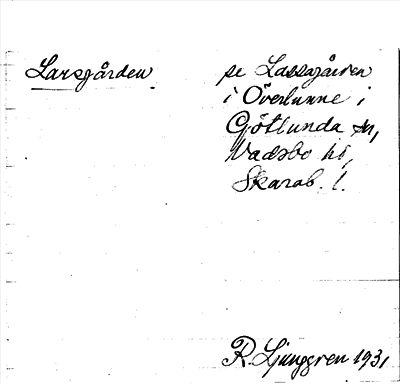 Larsgården
se Lassagården
i Överlunne i
Götlunda sn,
Vadsbo hd,
Skarab. l.
R. Ljunggren 1931